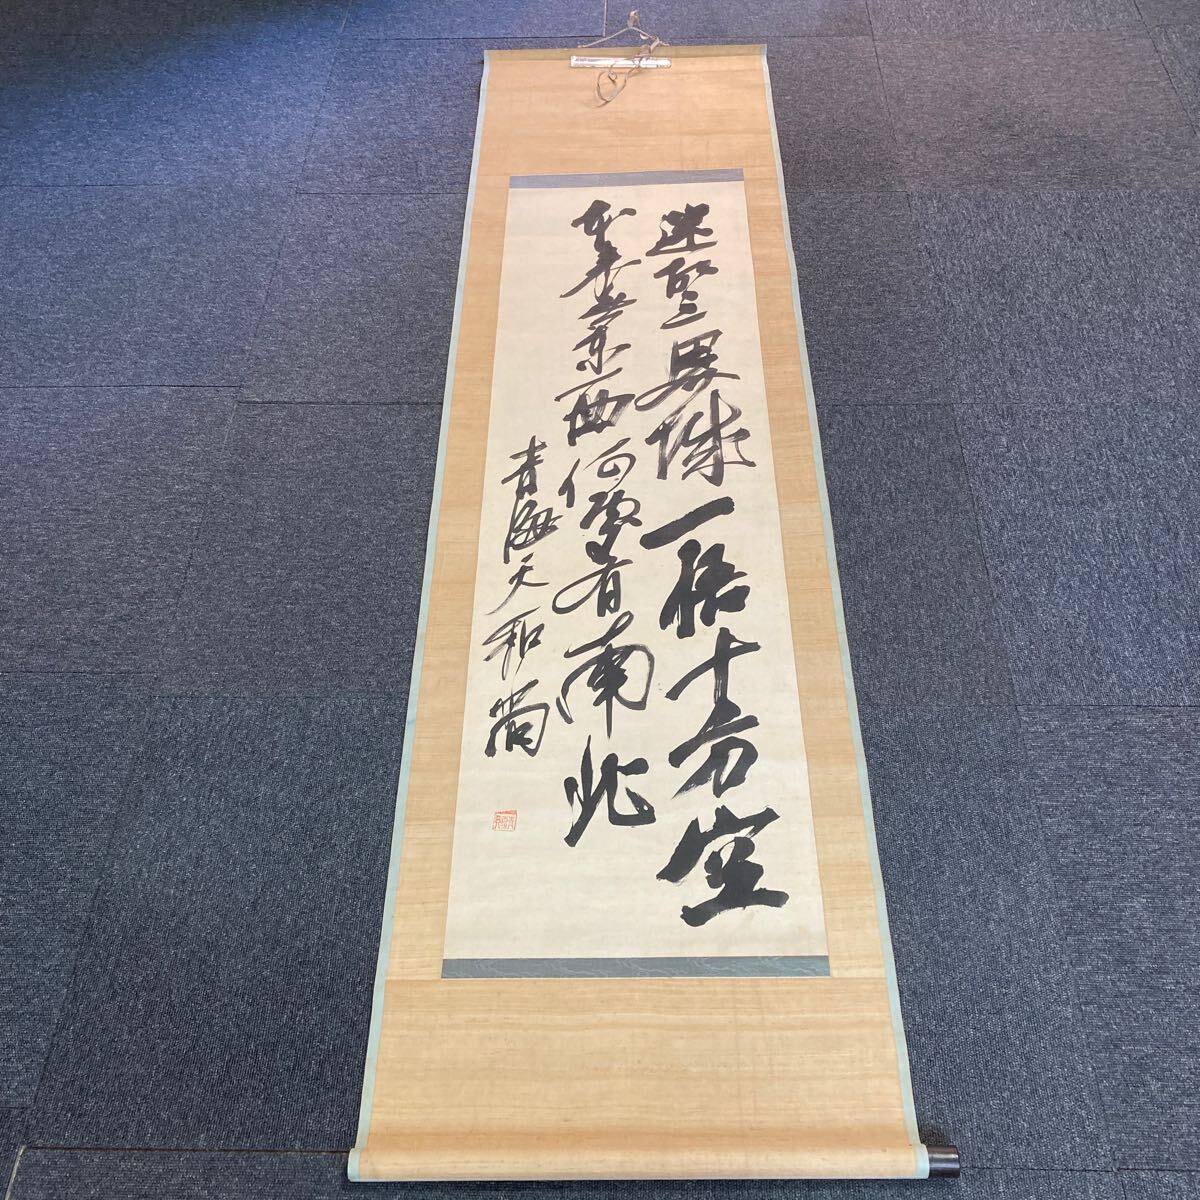 迷故三界城一悟十方空
本来無東西何處有南北
青海天和尚